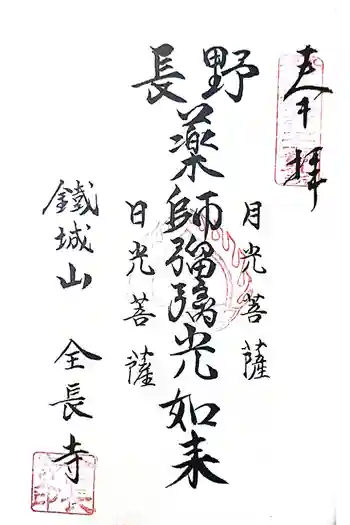 奉拝
長野
月光菩薩
薬師瑠璃光如来
日光菩薩
鐵城山
全長寺